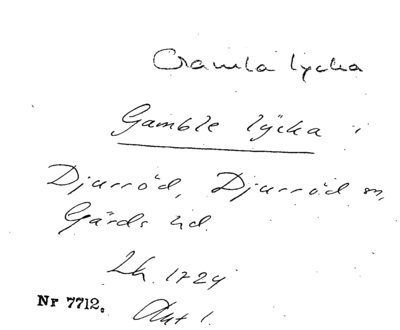 Gamla lycka
Gamble lycka i
Djurröd, Djurröd sn,
Gärds hd.
Lh. 1724
Nr 7712. Akt 1.